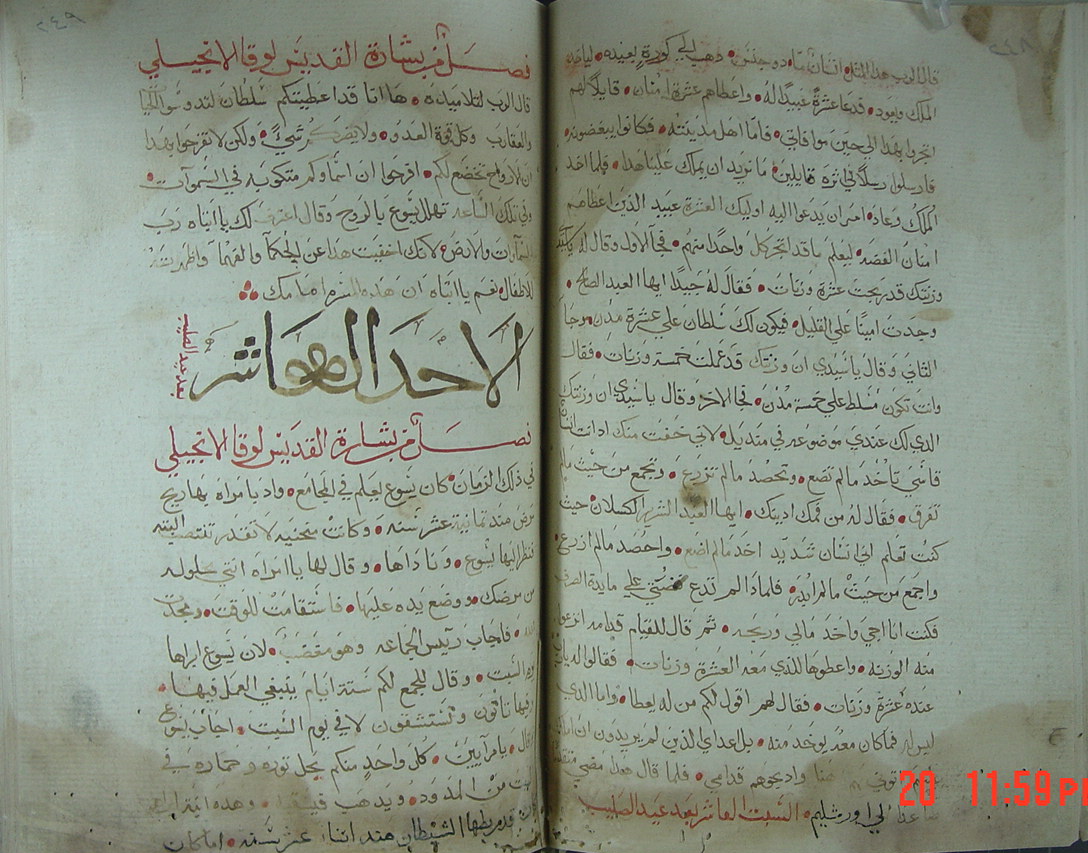 قال الرب هذا المثل انسان ما ذو جنس ذهب الي كورة بعيده لياخذ
الملك ويعود فدعا عشرة عبيد له واعطاهم عشرة امنان قايلا لهم
اتجروا بهذا الي حين موافاتي فاما اهل مدينته فكانوا يبغضونه
فارسلوا رسلا في اثره قايلين ما نريد ان يملك علينا هذا فلما اخذ
الملك وعاد امر ان يدعوا اليه اوليك العشرة عبيد الذين اعطاهم
امنان الفضه ليعلم ما قد اتجر كل واحدا منهم فجا الاول وقال له يا سيد
وزنتك قد ربحت عشرة وزنات فقال له جيدا ايها العبد الصالح
وجدت امينا علي القليل فيكون لك سلطان علي عشرة مدن وجا
الثاني وقال يا سيدي ان وزنتك قد عملت خمسة وزنات فقال
وانت تكون مسلط علي خمسة مدن فجا الاخر وقال يا سيدي ان وزنتك
الذي لك عندي موضوعه في منديل لاني خفت منك اذ انت انسان
قاسي تاخذ مالم تضع وتحصد مالم تزرع وتجمع من حيث مالم
تفرق فقال له من فمك ادينك ايها العبد الشرير الكسلان حيث
كنت تعلم اني انسان شديد اخذ مالم اضع واحصد مالم ازرع
واجمع من حيث مالم ابذر فلماذا لم تدع فضتي علي مايدة الصرف
فكنت انا اجي واخذ مالي وربحه ثم قال للقيام قدامه انزعوا
منه الوزنه واعطوها للذي معه العشرة وزنات فقالوا له يا رب
عنده عشرة وزنات فقال لهم اقول لكم من له يعطا واما الذي
ليس له فما كان معه يوخذ منه بل اعداي الذين لم يريدون ان املك
عليهم هنا واذبحوهم قدامي فلما قال هذا مضي متقدما
صاعدا الي اورشليم السبت العاشر بعد عيد الصليب
فصل من بشارة القديس لوقا الانجيلي
قال الرب لتلاميذه ها انا قد اعطيتكم سلطان لتدوسوا الحيات
والعقارب وكل قوة العدو ولا يضركم شي ولكن لا تفرحوا بهذا
ان الارواح تخضع لكم افرحوا ان اسماوكم مكتوبه في السموات
وفي تلك الساعه تهلل يسوع بالروح وقال اعترف لك يا ابتاه رب
السماوات والارض لانك اخفيت هذا عن الحكما والفهما واظهرته
للاطفال نعم يا ابتاه ان هذه المسره امامك
الاحد العاشر
بعد عيد الصليب
فصل من بشارة القديس لوقا الانجيلي
في ذلك الزمان كان يسوع يعلم في المجامع واذا بامراه بها ريح
مرض منذ ثمانية عشر سنه وكانت منحنيه لا تقدر تنتصب البته
فنظر اليها يسوع وناداها وقال لها يا امراه انتي محلوله
من مرضك ووضع يده عليها فاستقامت للوقت ومجدت
الله فاجاب رييس الجماعه وهو مغضب لان يسوع ابراها
يوم السبت وقال للجمع لكم ستة ايام ينبغي العمل فيها
وفيها تاتون وتستشفون لا في يوم السبت اجاب يسوع
وقال يا مرآيين كل واحد منكم يحل ثوره وحماره في
السبت من المدود ويذهب وهذه ابنة ابراهيم
قد ربطها الشيطان منذ ثمانية عشر سنه اما كان